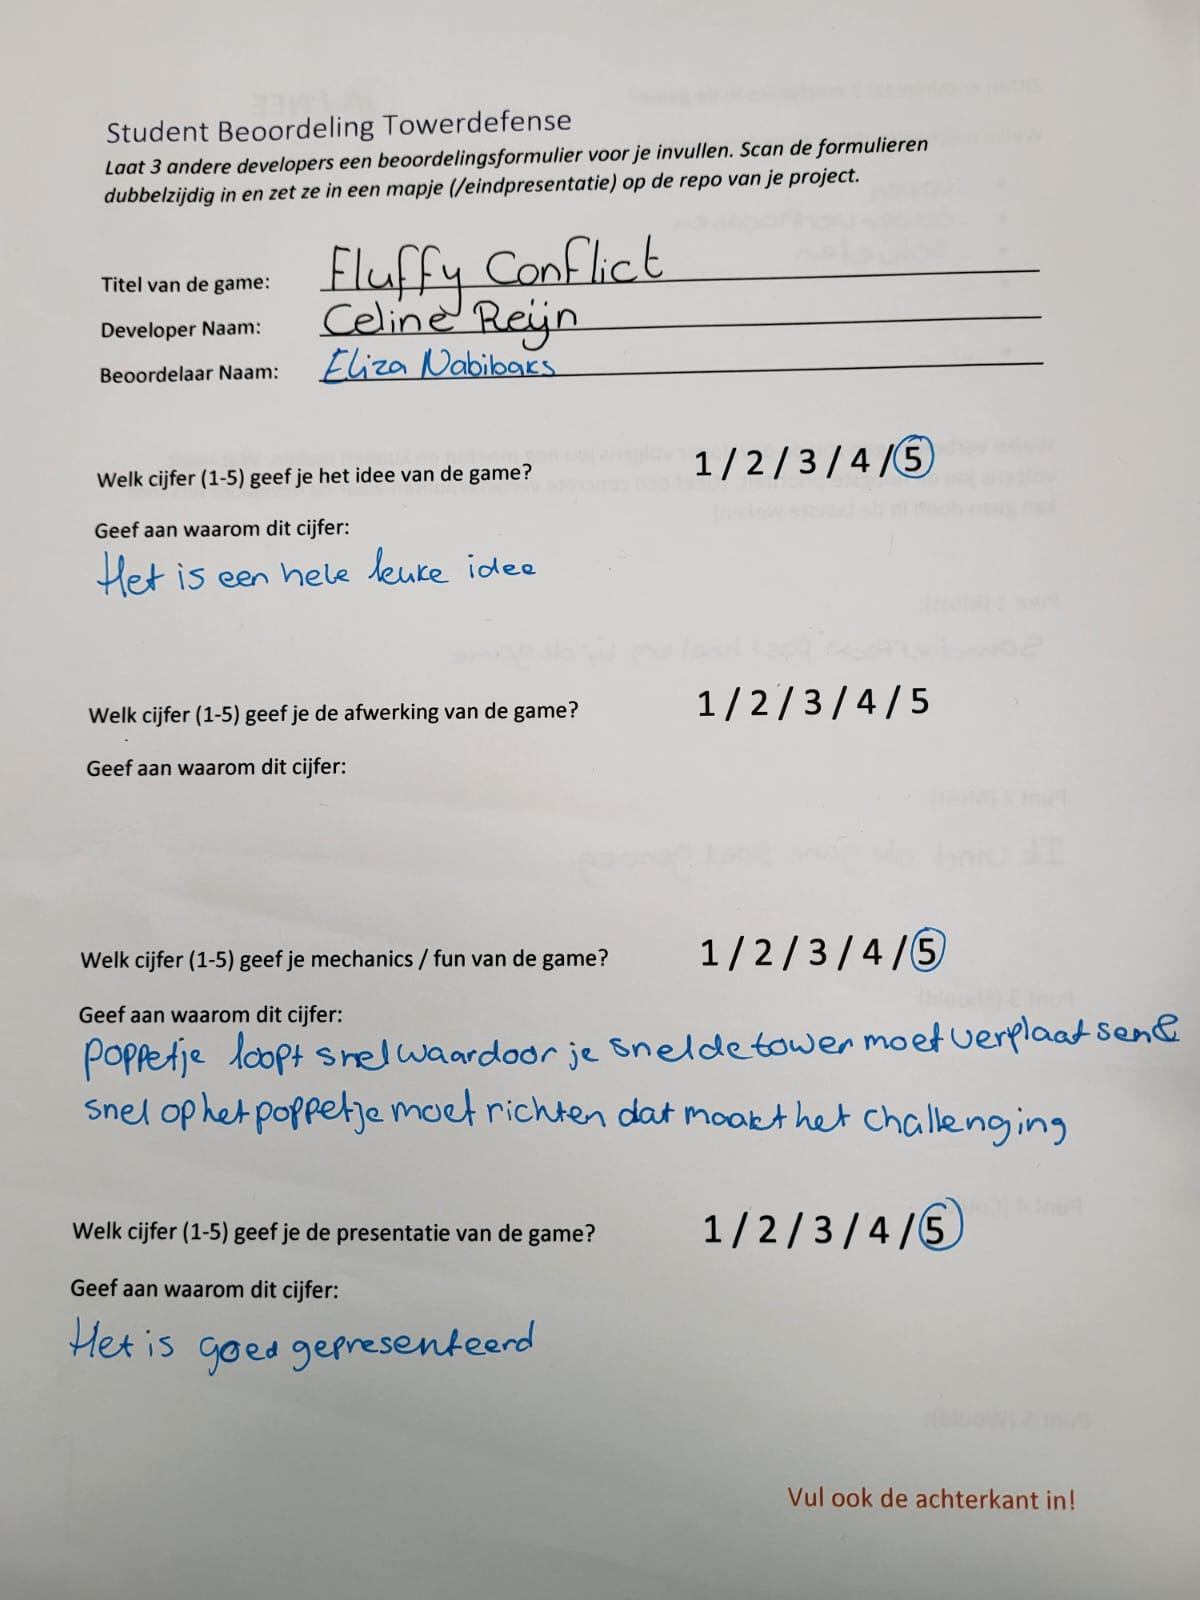 Student Beoordeling Towerdefense
Laat 3 andere developers een beoordelingsformulier voor je invullen. Scan de formulieren
dubbelzijdig in en zet ze in een mapje (/eindpresentatie) op de repo van je project.
Titel van de game: Fluffy Conflict
Developer Naam: Celine Reijn
Beoordelaar Naam: Eliza Nabibaks
Welk cijfer (1-5) geef je het idee van de game? 1 / 2 / 3 / 4 / 5
Geef aan waarom dit cijfer:
Het is een hele leuke idee
Welk cijfer (1-5) geef je de afwerking van de game? 1 / 2 / 3 / 4 / 5
Geef aan waarom dit cijfer:
Welk cijfer (1-5) geef je mechanics / fun van de game? 1 / 2 / 3 / 4 / 5
Geef aan waarom dit cijfer:
poppetje loopt snel waardoor je snel de tower moet verplaatsen &
snel op het poppetje moet richten dat maakt het challenging
Welk cijfer (1-5) geef je de presentatie van de game? 1 / 2 / 3 / 4 / 5
Geef aan waarom dit cijfer:
Het is goed gepresenteerd
Vul ook de achterkant in!